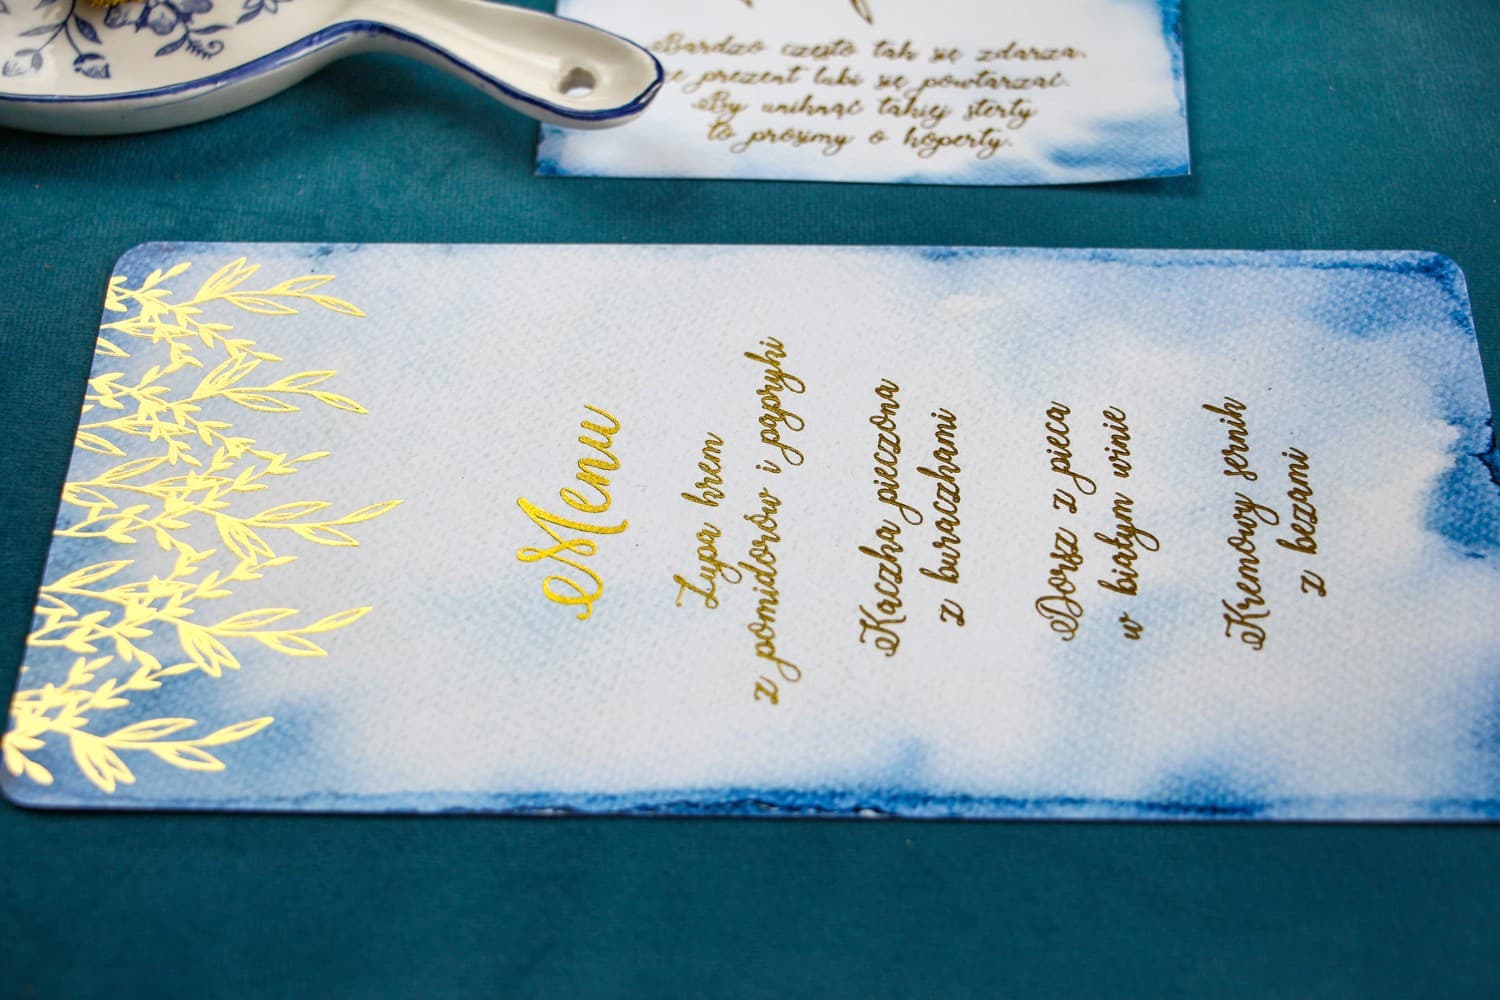 Bardzo często tak się zdarza,
że prezent lubi się powtarzać.
By uniknąć takiej sterty
to prosimy o koperty.
Menu
Zupa krem
z pomidorów i papryki
Kaczka pieczona
z buraczkami
Dorsz z pieca
w białym winie
Kremowy sernik
z bezami